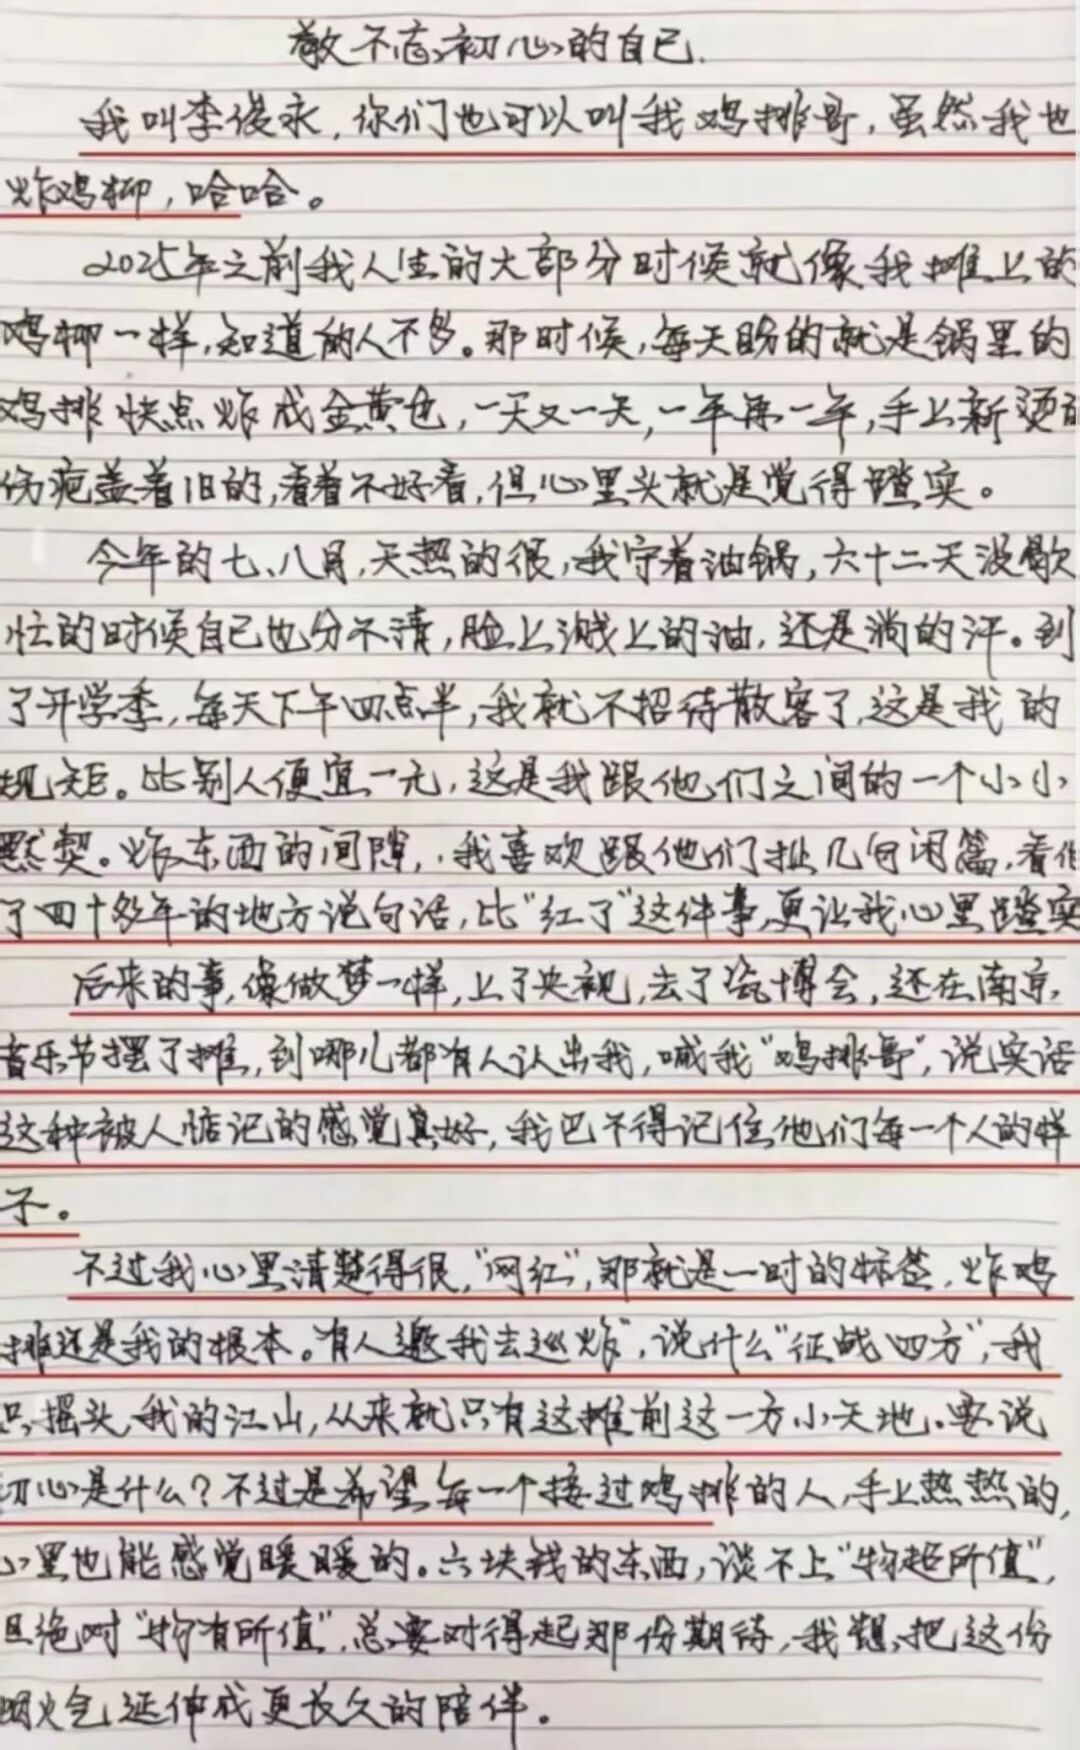 敬不忘初心的自己.
我叫李俊永，你们也可以叫我鸡排哥，虽然我也
炸鸡柳，哈哈。
2025年之前我人生的大部分时候就像我摊上的
鸡柳一样，知道的人不多。那时候，每天盼的就是锅里的
鸡排快点炸成金黄色，一天又一天，一年再一年，手上新烫的
伤疤盖着旧的，看着不好看，但心里头就是觉得踏实。
今年的七、八月，天热的很，我守着油锅，六十二天没歇
忙的时候自己也分不清，脸上溅上的油，还是淌的汗。到
了开学季，每天下午四点半，我就不招待散客了，这是我的
规矩。比别人便宜一元，这是我跟他们之间的一个小小
默契。炸东西的间隙，我喜欢跟他们扯几句闲篇，看他
了四十多年的地方说句话，比“红了”这件事，更让我心里踏实
后来的事，像做梦一样，上了央视，去了瓷博会，还在南京
音乐节摆了摊，到哪儿都有人认出我，喊我“鸡排哥”，说实话
这种被人惦记的感觉真好，我巴不得记住他们每一个人的样
子。
不过我心里清楚得很，“网红”，那就是一时的标签，炸鸡
排还是我的根本。有人邀我去巡炸”，说什么“征战四方”，我
只摇头，我的江山，从来就只有这摊前这一方小天地。要说
初心是什么？不过是希望每一个接过鸡排的人，手上热热的，
心里也能感觉暖暖的。六块钱的东西，谈不上“物超所值”，
但绝对“物有所值”，总要对得起那份期待，我想，把这份
烟火气延伸成更长久的陪伴。